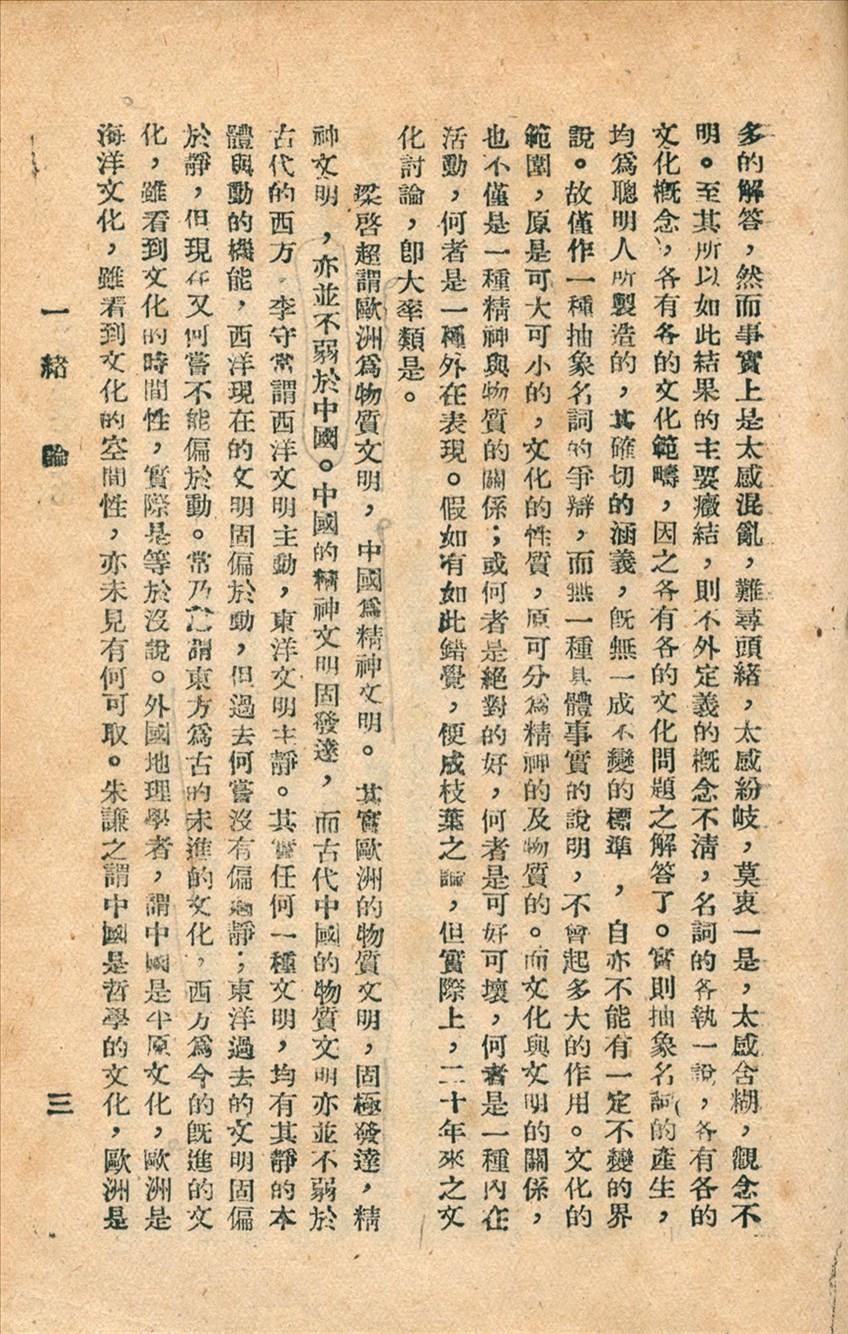 多的解答，然而事實上是太感混亂，難尋頭緒，太感紛岐，莫衷一是，太感含糊，觀念不
明。至其所以如此結果的主要癥結，則不外定義的概念不清，名詞的各執一說，各有各的
文化概念，各有各的文化範疇，因之各有各的文化問題之解答了。實則抽象名詞的產生，
均爲聰明人所製造的，其確切的涵義，旣無一成不變的標準，自亦不能有一定不變的界
說。故僅作一種抽象名詞的爭辯，而無一種具體事實的說明，不會起多大的作用。文化的
範圍，原是可大可小的，文化的性質，原可分爲精神的及物質的。而文化與文明的關係，
也不僅是一種精神與物質的關係；或何者是絕對的好，何者是可好可壞，何者是一種內在
活動，何者是一種外在表現。假如有如此錯覺，便成枝葉之論，但實際上，二十年來之文
化討論，卽大率類是。
梁啓超謂歐洲爲物質文明，中國爲精神文明。其實歐洲的物質文明，固極發達，精
神文明，亦並不弱於中國。中國的精神文明固發達，而古代中國的物質文明亦並不弱於
古代的西方。李守常謂西洋文明主動，東洋文明主靜。其實任何一種文明，均有其靜的本
體與動的機能，西洋現在的文明固偏於動，但過去何嘗沒有偏過靜；東洋過去的文明固偏
於靜，但現在又何嘗不能偏於動。常乃謂東方爲古的未進的文化，西方爲今的旣進的文
化，雖看到文化的時間性，實際是等於沒說。外國地理學者，謂中國是平原文化，歐洲是
海洋文化，雖看到文化的空間性，亦未見有何可取。朱謙之謂中國是哲學的文化，歐洲是
一 緒 論
三